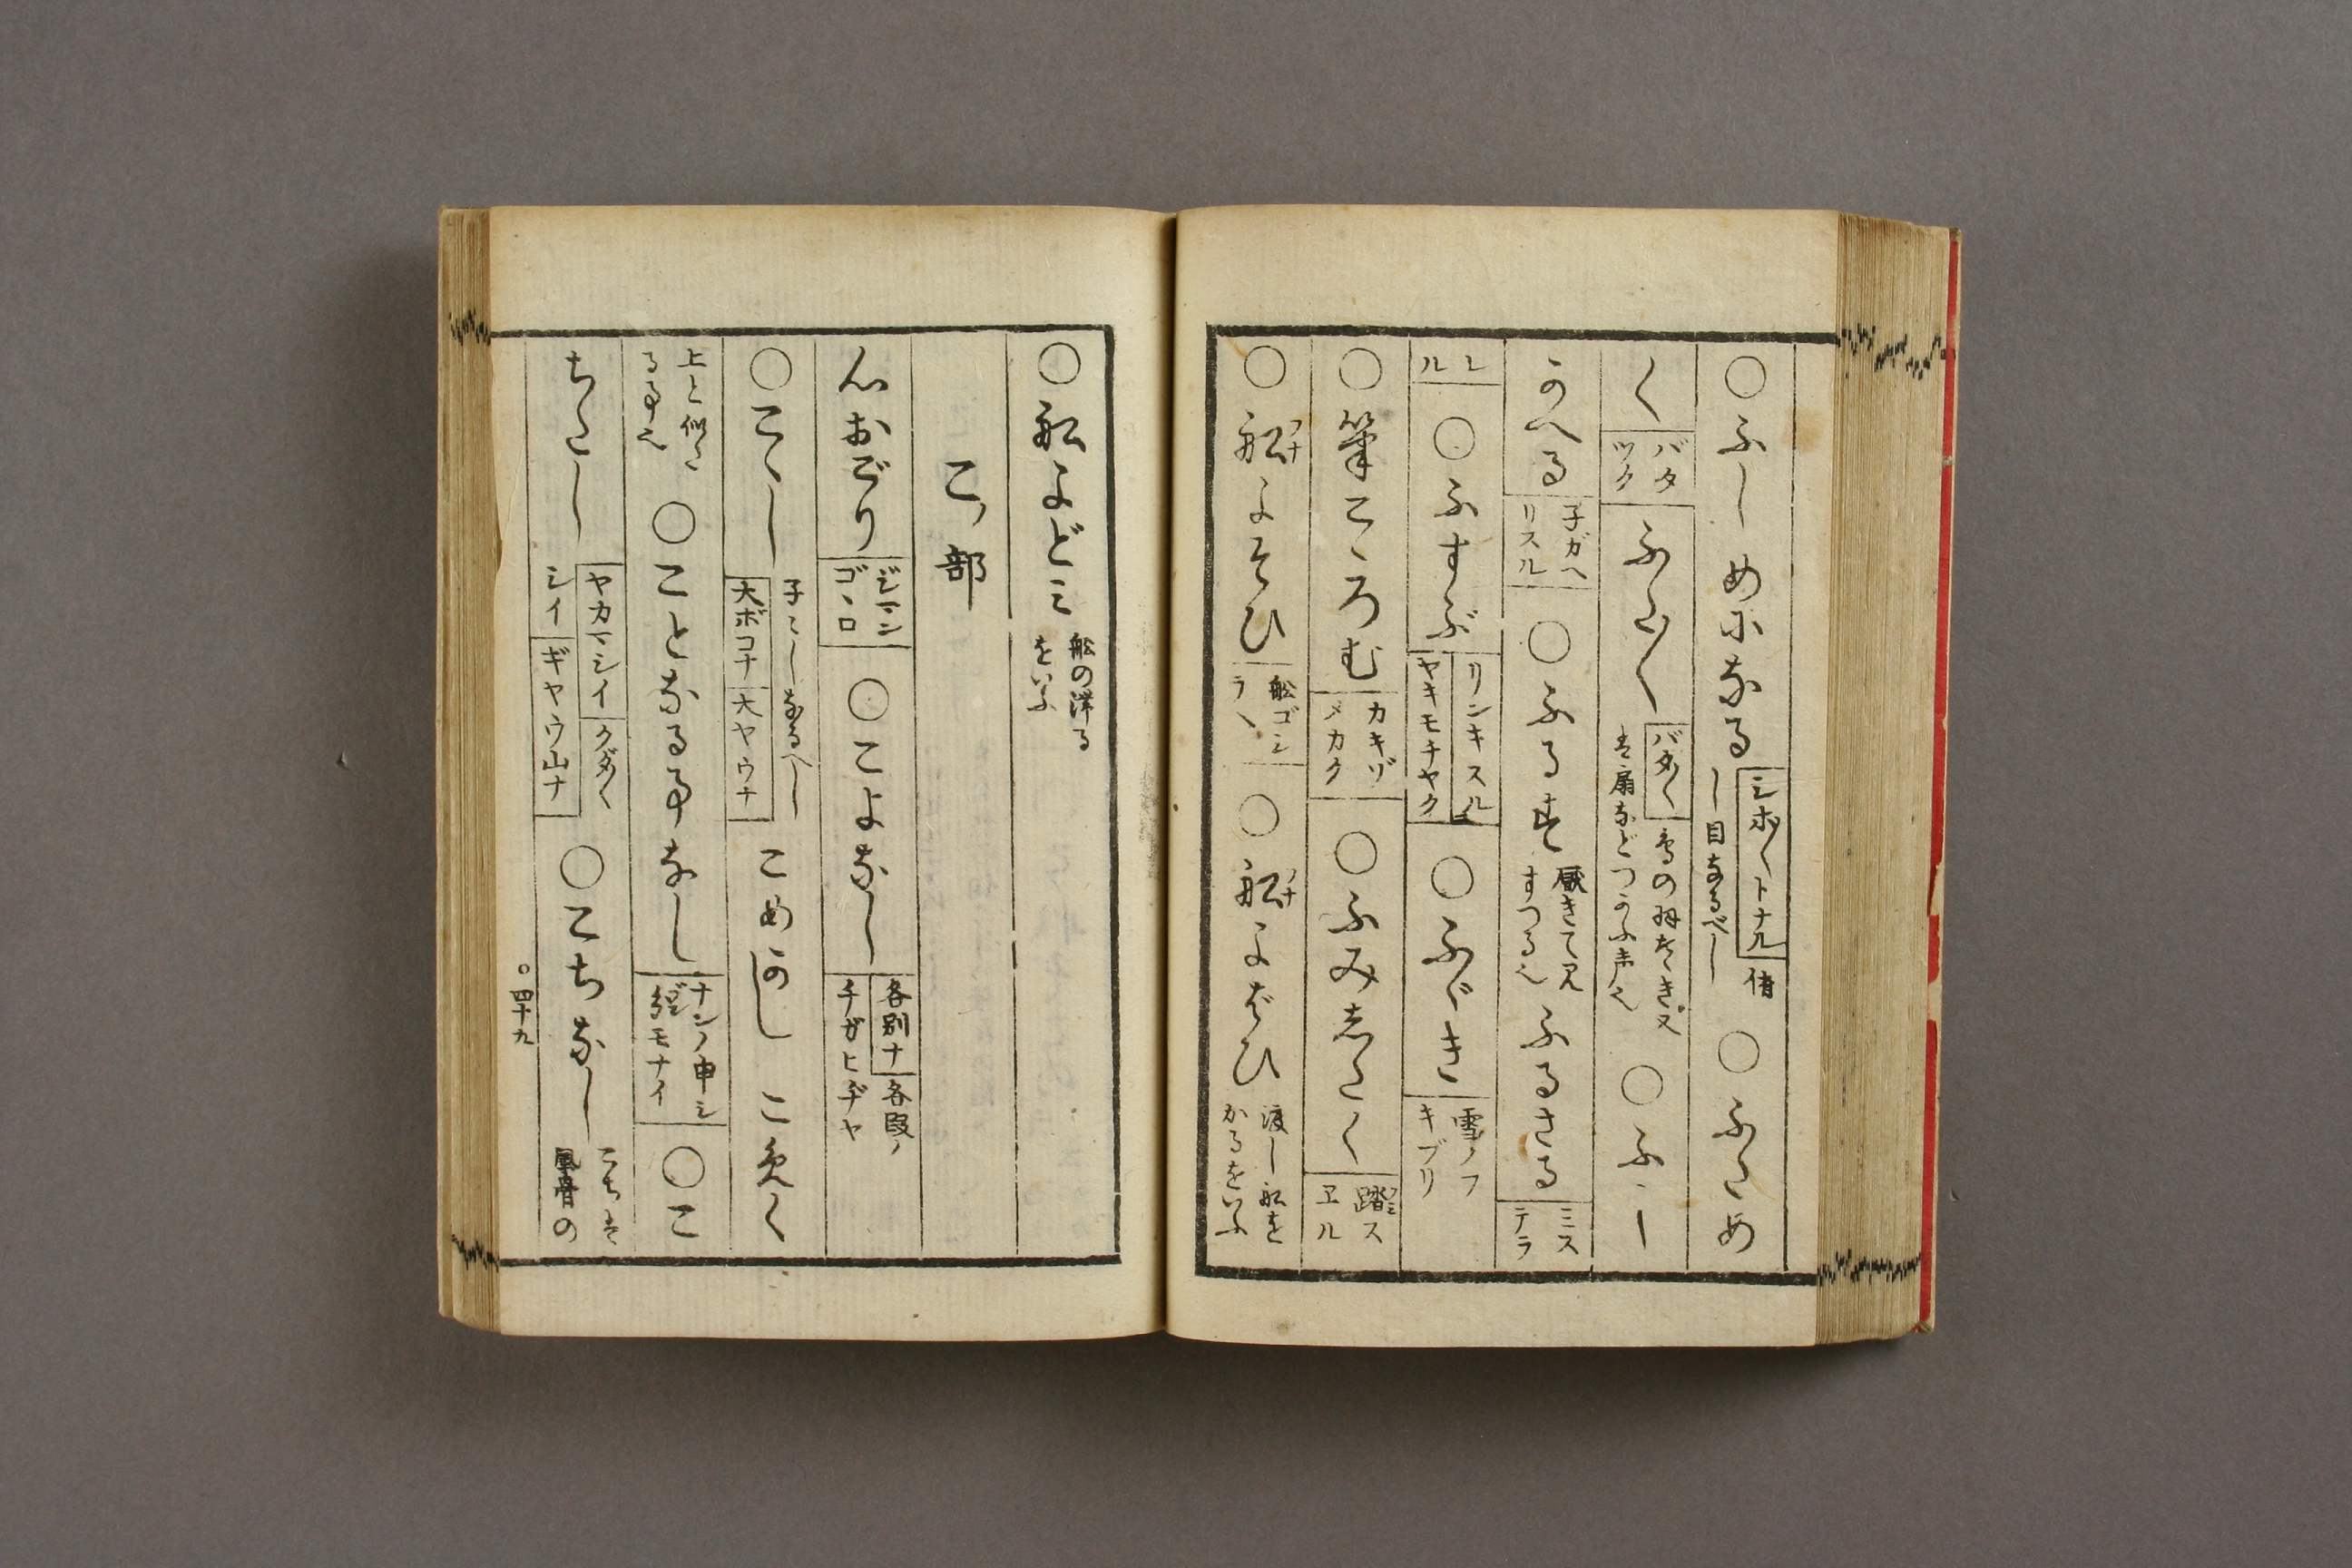 ○ふしめになる シホ〳〵トナル 伏し目なるべし ○ふため
く バタツク ふた〳〵 バタ〳〵 鳥の羽たたき又は扇などつかふ声也 ○ふし
かへる 子ガヘリスル ○ふるす 厭きて見すつる也 ふるさる ミステラ
レル ○ふすぶ リンキスル ヤキモチヤク ○ふゞき 雪ノフキブリ
○筆こゝろむ カキゾメカク ○ふみしたく 踏スヱル
○船よそひ 船ゴシラヘ ○船よばひ 渡し船をかるをいふ
○船よどミ 船の滞るをいふ
こノ部
心おごり ジマンゴヽロ ○こよなし 各別ナ 各段ノ チガヒヂヤ
○こゝし 子こしなるべし 大ボコナ 大ヤウナ こめかし こめく
上と似たる事也 ○ことなる事なし ナンノ申シ分モナイ ○こ
ちたし ヤカマシイ クダ〳〵シイ ギヤウ山ナ ○こちなし こちは風骨の
○四十九